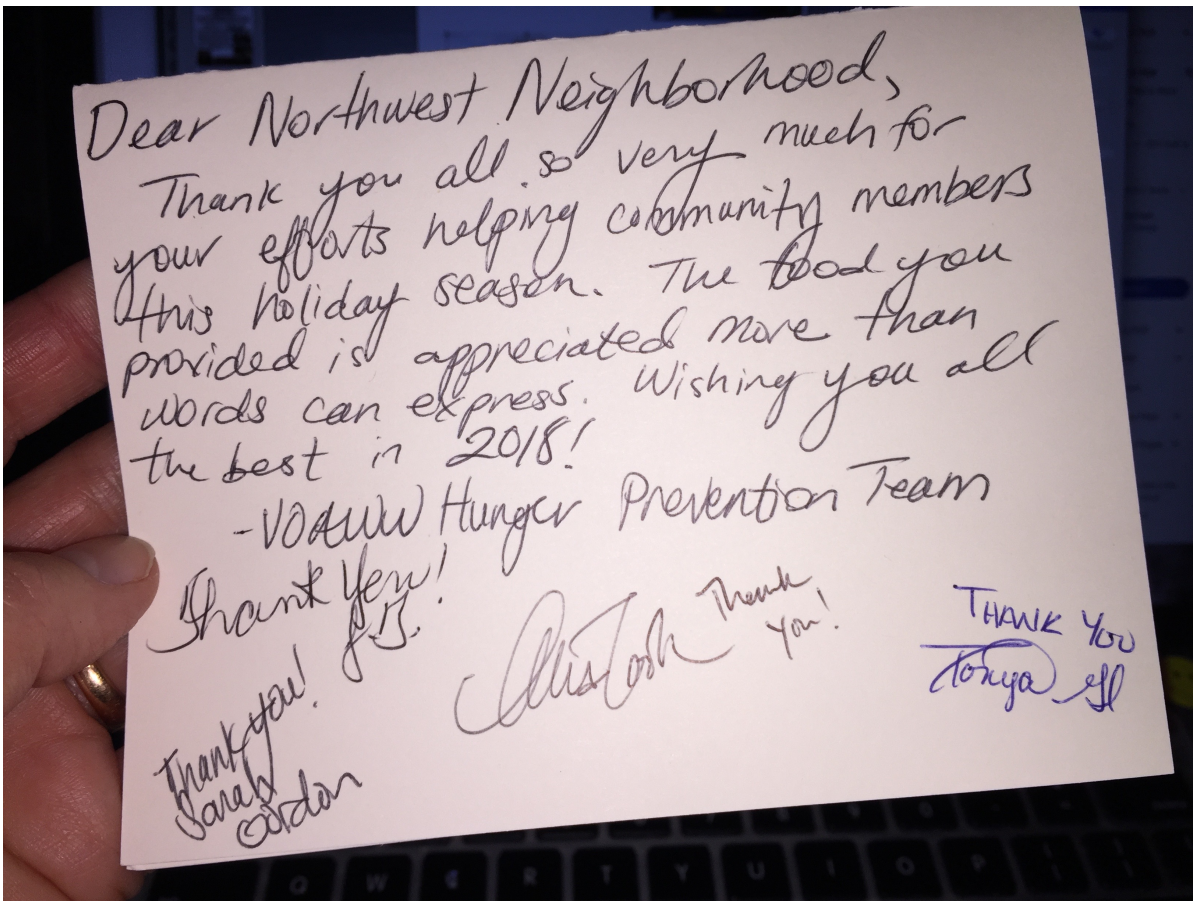 Dear Northwest Neighborhood,
Thank you all so very much for
your efforts helping community members
this holiday season. The food you
provided is appreciated more than
words can express. Wishing you all
the best in 2018!
-VOAWW Hunger Prevention Team
Thank You!
Thank
you!
THANK YOU
Tonya
Thank you!
Sarah
Gordon
Q W E R T Y U I O P